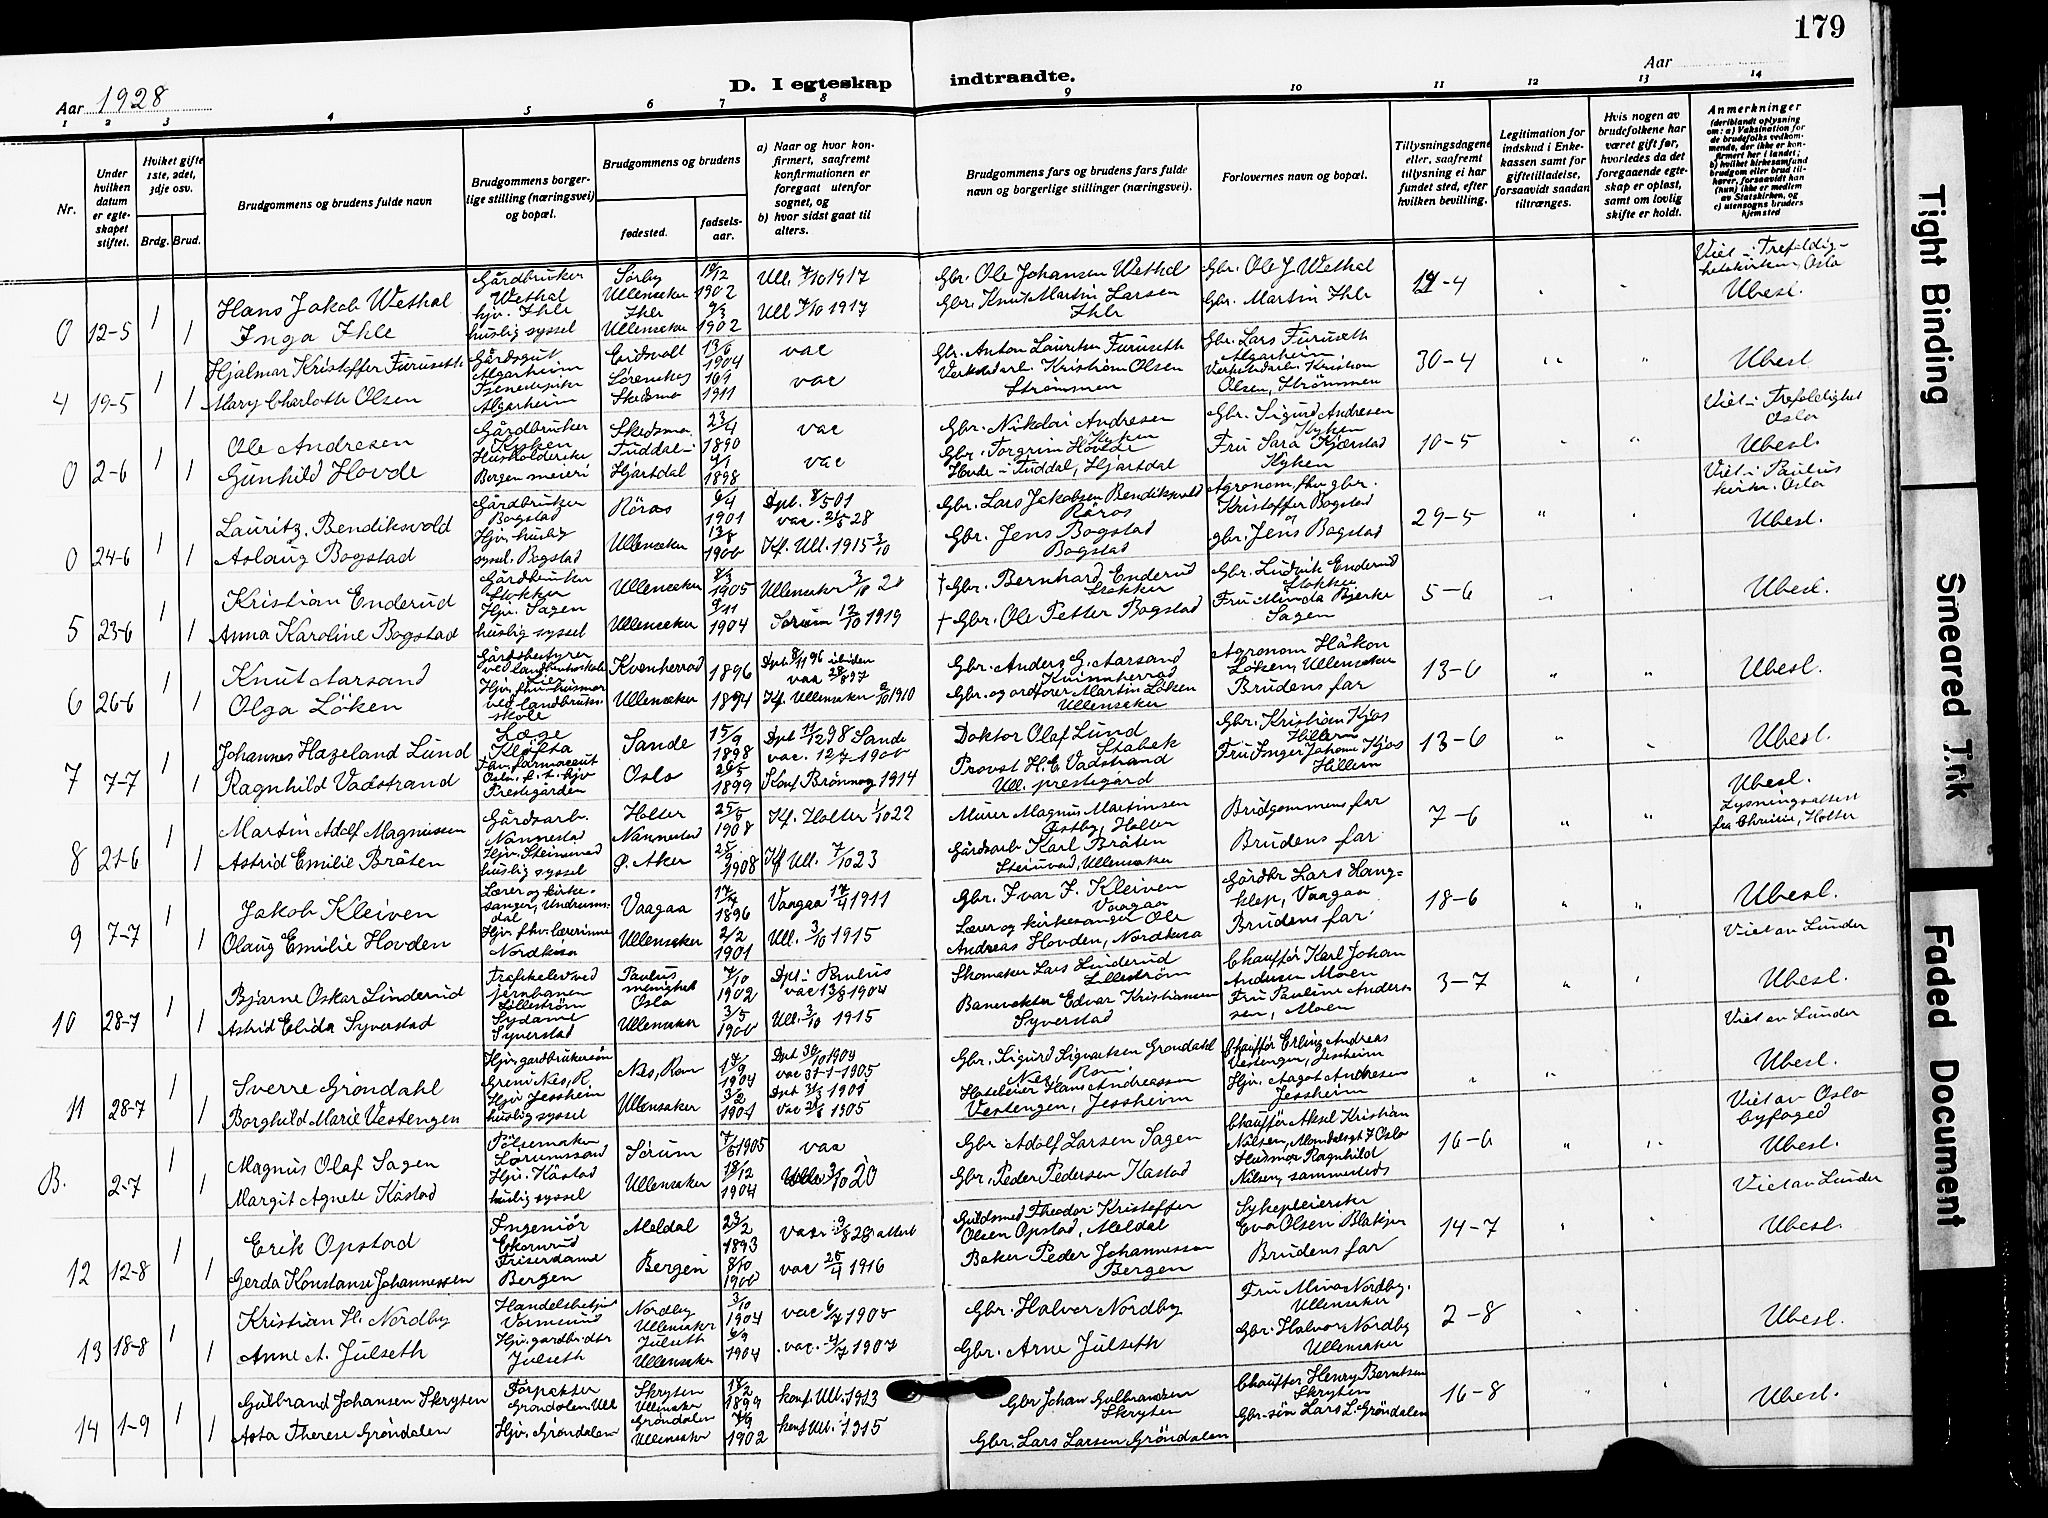 179
Aar 1928
D. I egteskap indtraadte.
Aar
1 2 3 4 5 6 7 8 9 10 11 12 13 14
Nr.
Under hvilken datum er egteskapet stiftet.
Hvilket gifte 1ste, 2det, 3dje osv.
Brdg. Brud.
Brudgommens og brudens fulde navn
Brudgommens borgerlige stilling (næringsvei) og bopæl.
Brudgommens og brudens
fødested.
fødselsaar.
a) Naar og hvor konfirmert, saafremt konfirmationen er foregaat utenfor sognet, og
b) hvor sidst gaat til alters.
Brudgommens fars og brudens fars fulde navn og borgerlige stillinger (næringsvei).
Forlovernes navn og bopæl.
Tillysningsdagene eller, saafremt tillysning ei har fundet sted, efter hvilken bevilling.
Legitimation for indskud i Enkekassen samt for giftetilladelse, forsaavidt saadan tiltrænges.
Hvis nogen av brudefolkene har været gift før, hvorledes da det foregaaende egteskap er opløst, samt om lovlig skifte er holdt.
Anmerkninger (deriblandt oplysning om: a) Vaksination for de brudefolks vedkommende, der ikke er konfirmert her i landet; b) hvilket kirkesamfund brudgom eller brud tilhører, forsaavidt han (hun) ikke er medlem av Statskirken, og c) utensogns bruders hjemsted
0 12-5 1 1
Hans Jakob Wethal
Inga Ihle
Gårdbruker Wethal
hjv. Ihle huslig syssel
Sörby Ullensaker 1902
Ihle Ullensaker 1902
Ull. 7/10 1917
Ull 7/10 1917
Gbr. Ole Johansen Wethal
Gbr. Knut Martin Larsen Ihle
Gbr. Ole J Wethal
Gbr. Martin Ihle
14-4
Viet i Trefoldighetskirken, Oslo
Ubesl.
4 19-5 1 1
Hjalmar Kristoffer Furuseth
Mary Charlotte Olsen
Gårdsgut Algarheim
Tjenestepike Algarheim
Eidsvoll 13/6 1904
Skedsmo 1911
vac
vac
Gbr. Anton Lauritsen Furuseth
Kristian Olsen Strømmen
Gbr. Lars Furuseth Algarheim
Kristian Olsen, Strömmen
30-4
Ubesl
0 2-6 1 1
Ole Andresen
Gunhild Hovde
Gårdbruker Kyken
Husholderske Borgen meieri
Skedsmo 23/4 1890
Tuddal i Hjartdal 1898
vac
vac
Gbr. Nikolai Andresen Kyken
Gbr. Torgrim Hovde Hovde i Tuddal, Hjartdal
Gbr. Sigurd Andresen Kyken
Fru Sara Kjærstad Kyken
10-5
Viet i Trefoldighet Oslo
Ubesl.
0 24-6 1 1
Lauritz Bendiksvold
Aslaug Bogstad
Gårdbruker Bogstad
Hjv. huslig syssel. Bogstad
Röros 6/4 1901
Ullensaker 1900
Dpt. 8/5 01
vac. 28
Kf. Ull. 1915 3/10
Gbr. Lars Jakobsen Bendiksvold Röros
Gbr. Jens Bogstad Bogstad
Agronom, fhv gbr. Kristoffer Bogstad
gbr. Jens Bogstad
29-5
Viet i Paulus kirke. Oslo
Ubesl.
5 23-6 1 1
Kristian Enderud
Anna Karoline Bogstad
Gårdbruker Stokker
Hjv. Sagen huslig syssel
Ullensaker 1905
Ullensaker 9/11 1904
Ullensaker
Sörum 12/10 1919
† Gbr. Bernhard Enderud Stokker
† Gbr. Ole Petter Bogstad
Gbr. Ludvik Enderud Stokker
Fru Minda Bjerke Sagen
5-6
Ubesl.
6 26-6 1 1
Knut Aarsand
Olga Löken
Gårdsbestyrer ved landbruksskole
Hjv. fhv. husmor ved landbruksskole
Kvinherrad 1896
Ullensaker 1894
Dpt. 8/11 96 ibiden
vac 28/8 97
Kf. Ullensaker 2/10 1910
Gbr. Anders G. Aarsand Kvinnherrad
Gbr. og ordförer Martin Löken Ullensaker
Agronom Håkon Löken, Ullensaker
Brudens far
13-6
Ubesl.
7 7-7 1 1
Johannes Hazeland Lund
Ragnhild Vadstrand
Læge Klöfta
Fhv. farmaceut Oslo, f. t. hjv Prestegården
Sande 15/9 1898
Oslo 26/5 1899
Dpt 11/12 98 Sande
vac. 12/7 1900
Konf Brönnöy 1914
Doktor Olaf Lund Stabek
Provst H. E. Vadstrand Ull. prestegård
Gbr. Kristian Kjos Hillern
Fru Inger Johanne Kjos Hillern
13-6
Ubesl.
8 21-6 1 1
Martin Adolf Magnussen
Astrid Emilie Bråten
Gårdsarb. Nannestad
Hjv. Steinsvad huslig syssel
Holter Nannestad 25/5 1908
Ö. Aker 1908
Kf. Holter 1/10 22
Kf Ull. 7/10 23
Murer Magnus Martinsen Östby, Holter
Gårdsarb Karl Bråten Steinsvad, Ullensaker
Brudgommens far
Brudens far
7-6
Ubesl.
Lysningsattest fra Christie, Holter
9 7-7 1 1
Jakob Kleiven
Olaug Emilie Hovden
Lærer og kirkesanger, Undrumsdal
Hjv. fhv. lærerinne Nordkisa
Vaagaa 17/7 1896
Ullensaker 2/2 1901
Vaagaa 17/4 1911
Ull. 3/10 1915
Gbr. Ivar I. Kleiven Vaagaa
Lærer og kirkesanger Ole Andreas Hovden, Nordkisa
Gårdbr Lars Haugklep, Vaagaa
Brudens far
18-6
Ubesl.
Viet av Lunder
10 28-7 1 1
Bjarne Oskar Linderud
Astrid Elida Syverstad
jernbanen Lilleström
Sydame Syverstad
Paulus menighet Oslo 7/10 1902
Ullensaker 3/5 1900
Dpt. i Paulus
vac 13/8 1904
Ull. 3/10 1915
Skomaker Lars Linderud Lilleström
Banevokter Edvar Kristiansen Syverstad
Chauffør Karl Johan Andersen Moen
Fru Pauline Andersen, Moen
3-7
Ubesl.
Viet av Lunder
11 28-7 1 1
Sverre Gröndahl
Borghild Marie Vestengen
Hjv. gardbrukersön Greni Nes, R.
Hjv Jessheim huslig syssel
Nes, Rom 1904
Ullensaker 3/2 1901
Dpt 30/10 1904
vac 31-1-1905
Dpt 31/3 1901
vac 1905
Gbr. Sigurd Sigvartsen Gröndahl Nes, Rom.
Hoteleier Hans Andreassen Vestengen, Jessheim
Chauffør Erling Andreas Vestengen, Jessheim
Hjv. Aagot Andresen Jessheim
Ubesl.
B. 2-7 1 1
Magnus Olaf Sagen
Margit Agnete Kåstad
Pölsemaker Sörumsand
Hjv. Kåstad huslig syssel
Sörum 1905
Ullensaker 18/12 1904
vac
Ullens 3/10 20
Gbr. Adolf Larsen Sagen
Gbr. Peder Pedersen Kåstad
Chauffør Aksel Kristian Nilsen, Mandalsgt 7 Oslo
Husmor Ragnhild Nilsen, sammesteds
16-6
Viet av Oslo byfoged
Ubesl.
Viet av Lunder
12 12-8 1 1
Erik Opstad
Gerda Konstanse Johannessen
Ingeniör Ekornrud
Friserdame Bergen
Meldal 23/2 1893
Bergen 8/10 1900
vac
vac 25/4 1916
Guldsmed Theodor Kristoffer Olsen Opstad, Meldal
Baker Peder Johannessen Bergen
Sykepleierske Eva Olsen Blakjer
Brudens far
14-7
Ubesl.
13 18-8 1 1
Kristian H. Nordby
Anne A. Julseth
Handelsbetjent Vormsund
Hjv. gardbr.dtr Julseth
Nordby Ullensaker 3/10 1904
Julseth Ullensaker 1904
vac 6/7 1905
vac. 1907
Gbr. Halvor Nordby
Gbr. Arne Julseth
Fru Mina Nordby. Ullensaker
Gbr. Halvor Nordby Ullensaker
2-8
Ubesl.
14 1-9 1 1
Gulbrand Johansen Skryten
Asta Therese Gröndalen
Forpakter Gröndalen Ull
Hjv. Gröndalen
Skryten Ullensaker 18/2 1899
Gröndalen Ullensaker 1902
konf. Ull. 1913
konf Ull. 1915
Gbr Johan Gulbrandsen Skryten
Gbr. Lars Larsen Gröndalen
Chauffør Henry Berntsen Skryten
Gbr. sön Lars L. Gröndalen
16-8
Ubesl.
Tight Binding
Smeared Ink
Faded Document